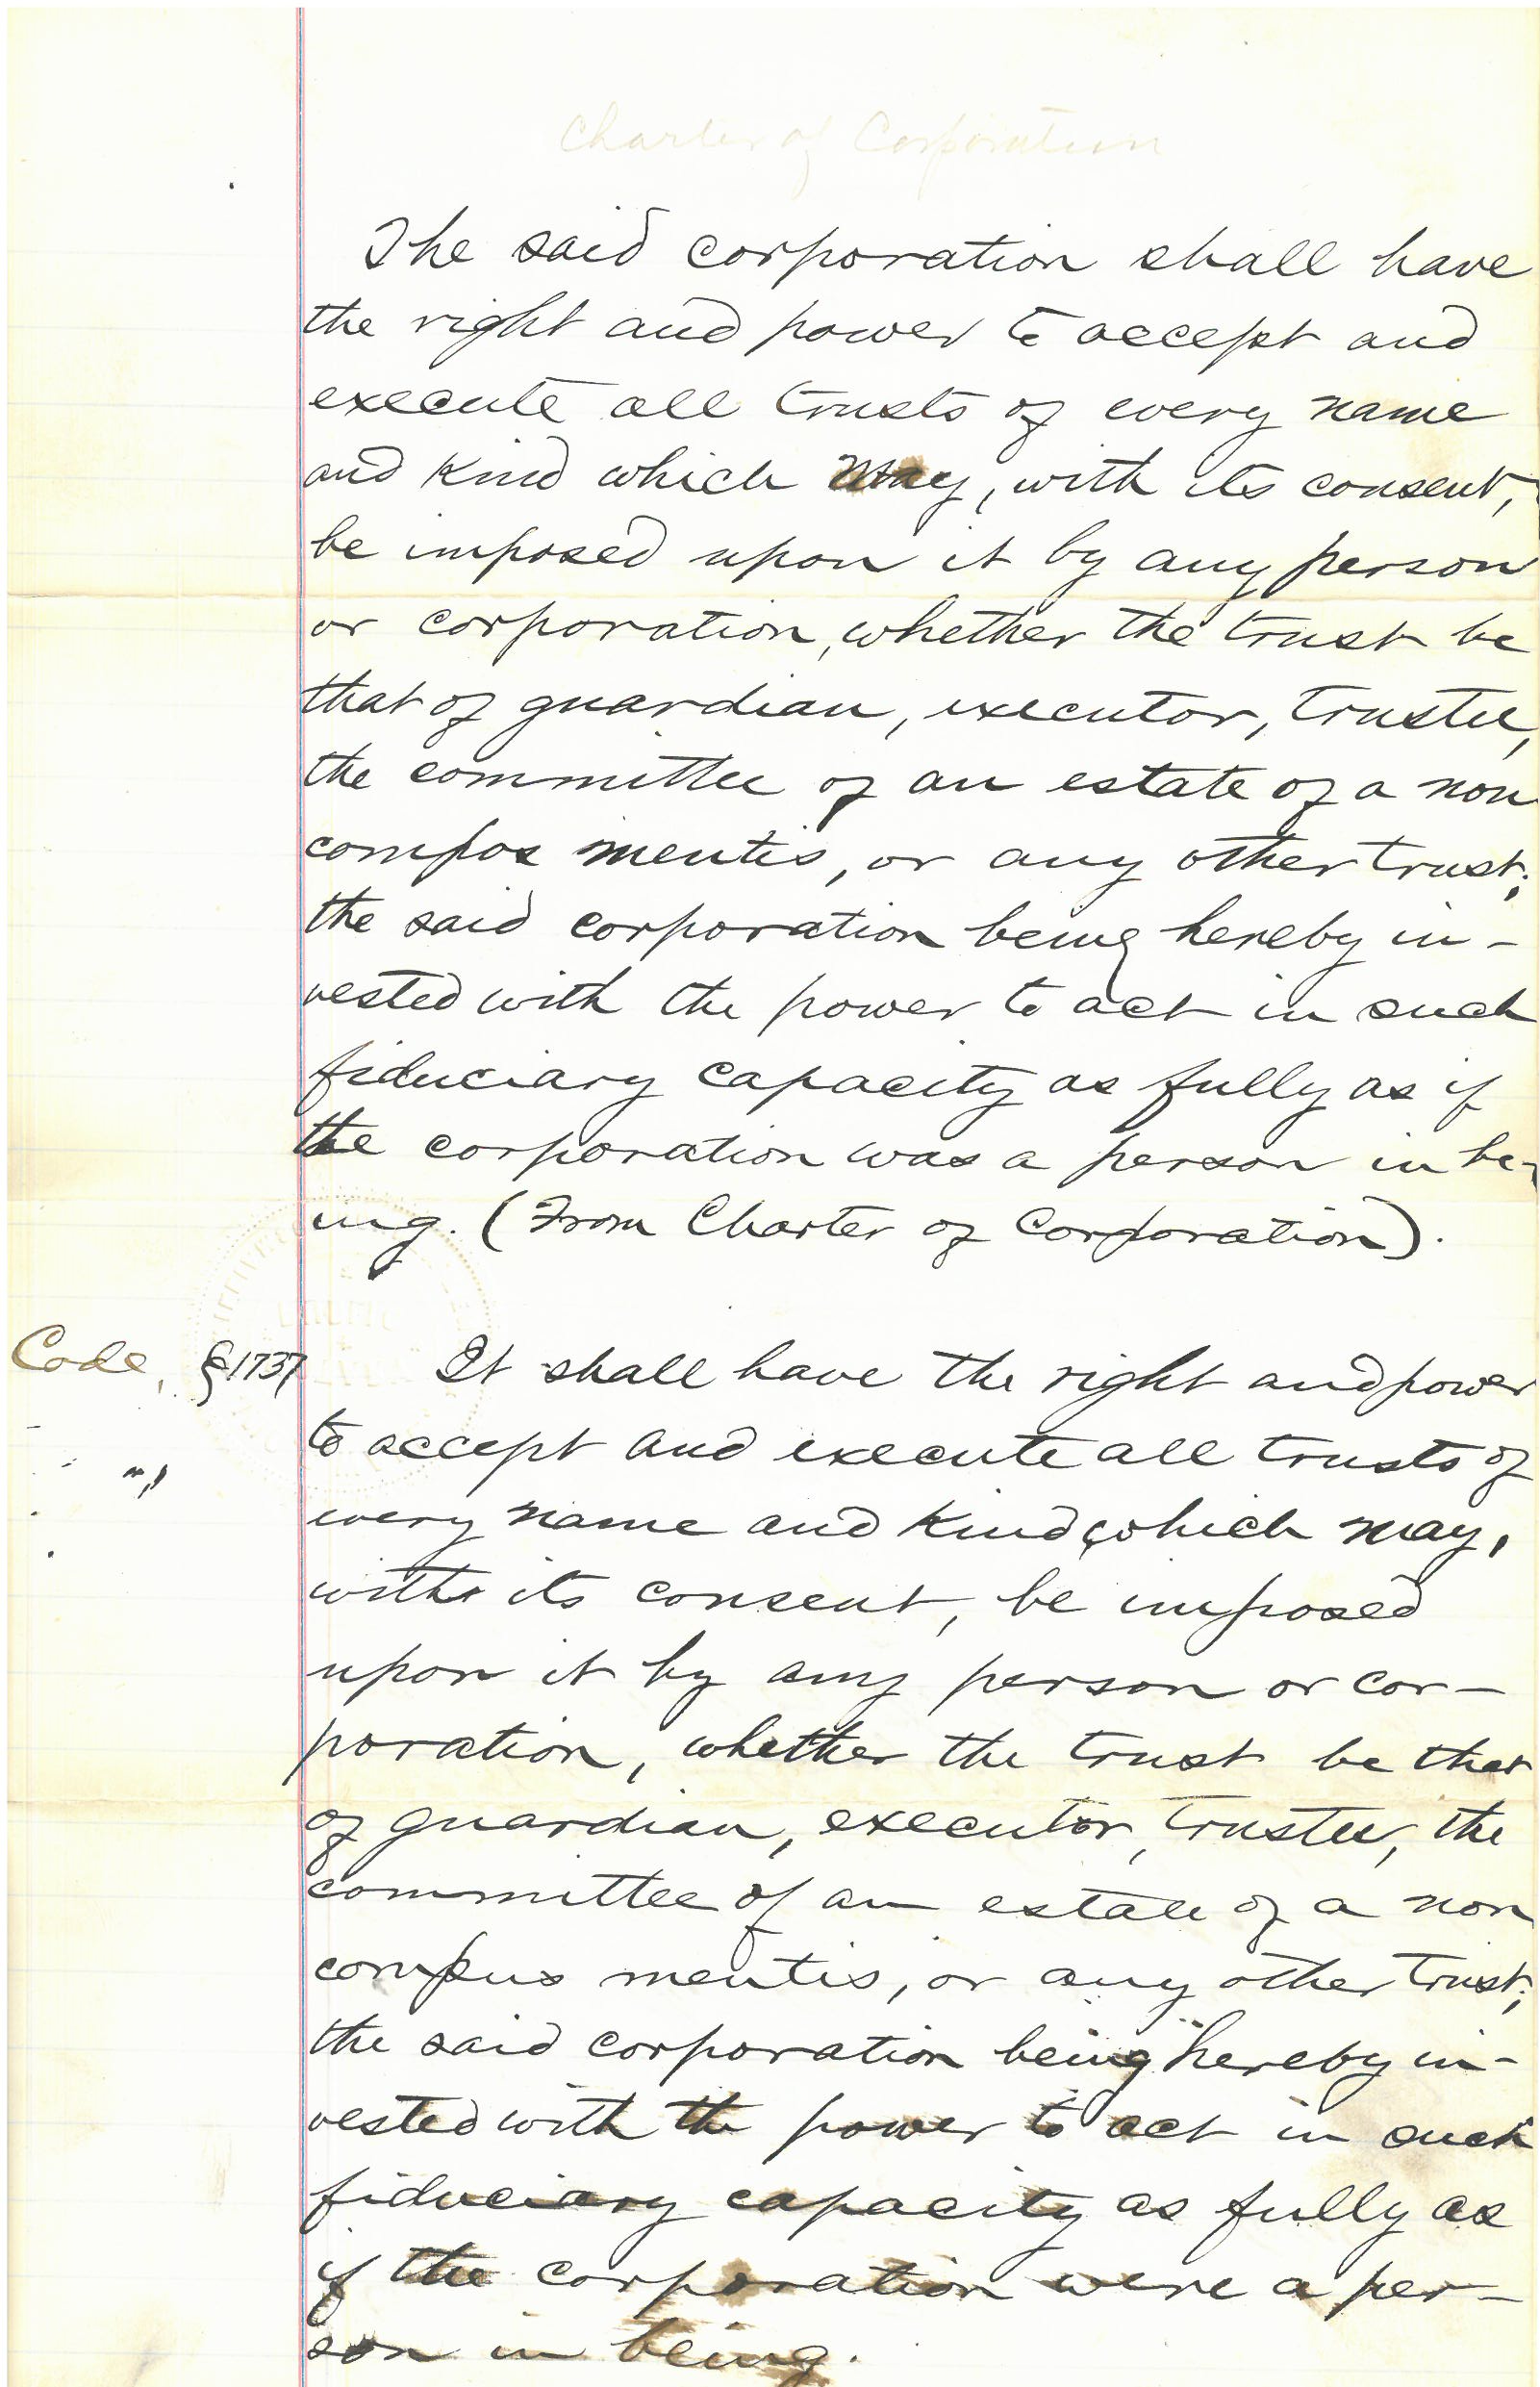 Charter of Corporation
The said corporation shall have
the right and power to accept and
execute all trusts of every name
and kind which may, with its consent,
be imposed upon it by any person
or corporation, whether the trust be
that of guardian, executor, trustee,
the committee of an estate of a non
compos mentis, or any other trust;
the said corporation being hereby in-
vested with the power to act in such
fiduciary capacity as fully as if
the corporation was a person in be-
ing. (From Charter of Corporation).
Code, §1737
It shall have the right and power
to accept and execute all trusts of
every name and kind which may,
with its consent, be imposed
upon it by any person or cor-
poration, whether the trust be that
of guardian, executor, trustee, the
committee of an estate of a non
compus mentis, or any other trust;
the said corporation being hereby in-
vested with the power to act in such
fiduciary capacity as fully as
if the corporation were a per-
son in being.